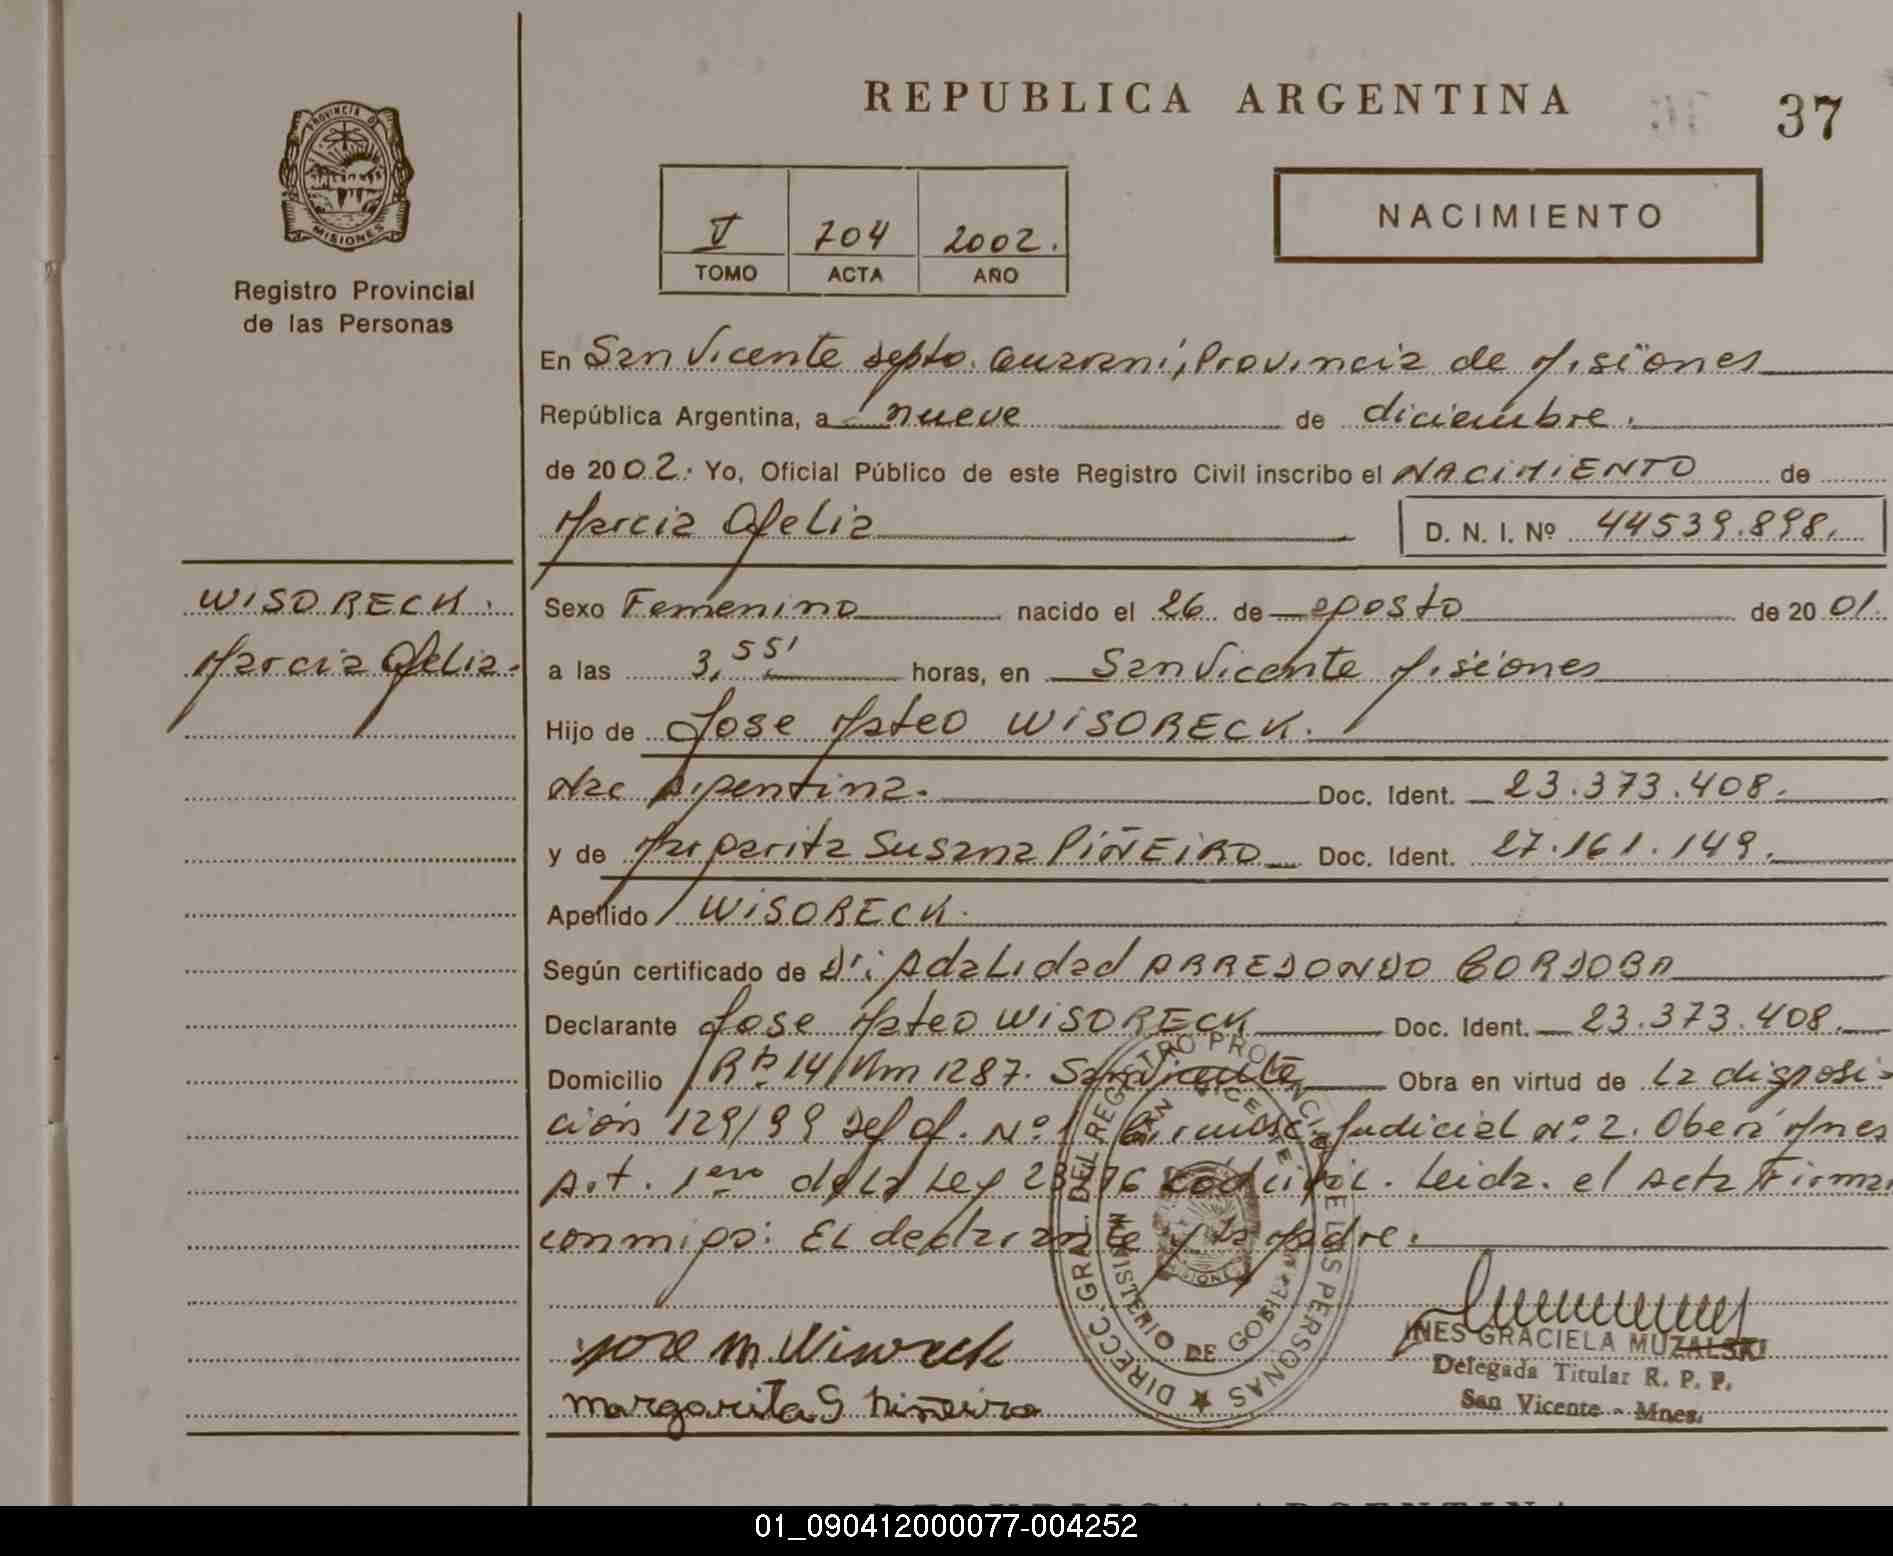 REPUBLICA ARGENTINA
37
PROVINCIA DE
MISIONES
Registro Provincial
de las Personas
V 704 2002.
TOMO ACTA AÑO
NACIMIENTO
En San Vicente depto. Guarani, Provincia de Misiones
República Argentina, a nueve de diciembre.
de 2002. Yo, Oficial Público de este Registro Civil inscribo el NACIMIENTO de
Marcia Ofelia D. N. I. Nº 44539.898.
WISORECK.
Marcia Ofelia.
Sexo Femenino nacido el 26 de agosto de 2001.
a las 3,55' horas, en San Vicente Misiones
Hijo de Jose Mateo WISORECK.
Nac Argentina. Doc. Ident. 23.373.408.
y de Margarita Susana PIÑEIRO Doc. Ident. 27.161.149.
Apellido WISORECK.
Según certificado de Dr: Adalidad ARREDONDO CORDOBA
Declarante Jose Mateo WISORECK Doc. Ident. 23.373.408.
Domicilio Rta 14 Km 1287. San Vicente Obra en virtud de la disposi-
ción 129/99 Def of. Nº 1 Judicial nº 2. Obera Mnes
Art. 1ero de la Ley Leida el Acta Firman
conmigo: El declarante y la Madre.
Jose M. Wisoreck
Margarita S Piñeiro
INES GRACIELA MUZALSKI
Delegada Titular R. P. P.
San Vicente - Mnes.
DIRECC. GRAL. DEL REGISTRO PROVINCIAL DE LAS PERSONAS
SAN VICENTE
MINISTERIO DE GOBIERNO
MISIONES
REPUBLICA ARGENTINA
01_090412000077-004252